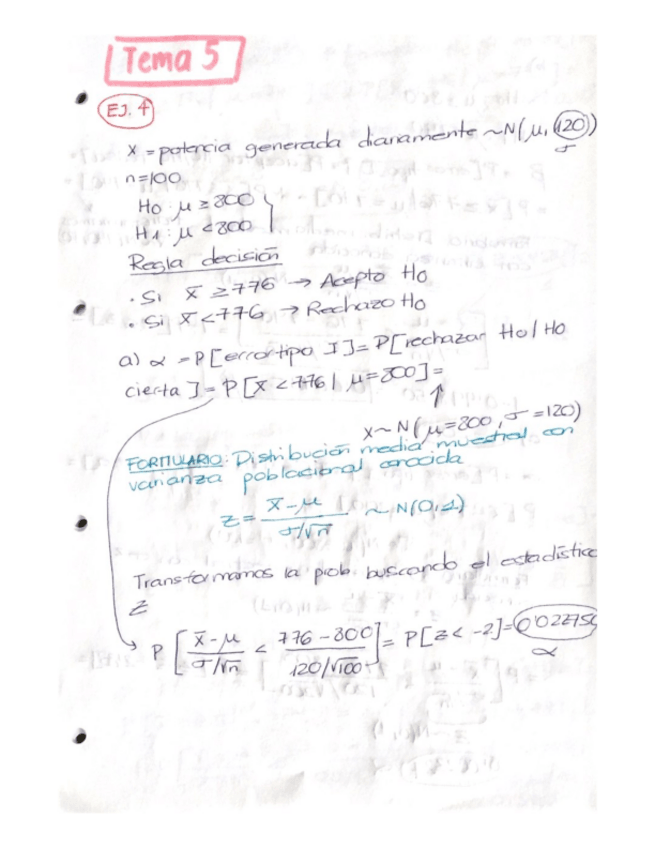 Tema 5
EJ. 4
X = potencia generada diariamente ~N(μ, 120)
σ
n=100
H0: μ ≥ 800
H1: μ < 800
Regla decisión
· Si x̄ ≥ 776 → Acepto H0
· Si x̄ < 776 → Rechazo H0
a) α = P[error tipo I] = P[rechazar H0/H0
cierta] = P[x̄ < 776 | μ = 800] =
x ~ N(μ = 800, σ = 120)
FORMULARIO: Distribución media muestral con
varianza poblacional conocida
Z = x̄ - μ / σ/√n ~ N(0,1)
Transformamos la prob. buscando el estadístico
Z
P [ x̄ - μ / σ/√n < 776 - 800 / 120/√100 ] = P[z < -2] = 0'02275
α